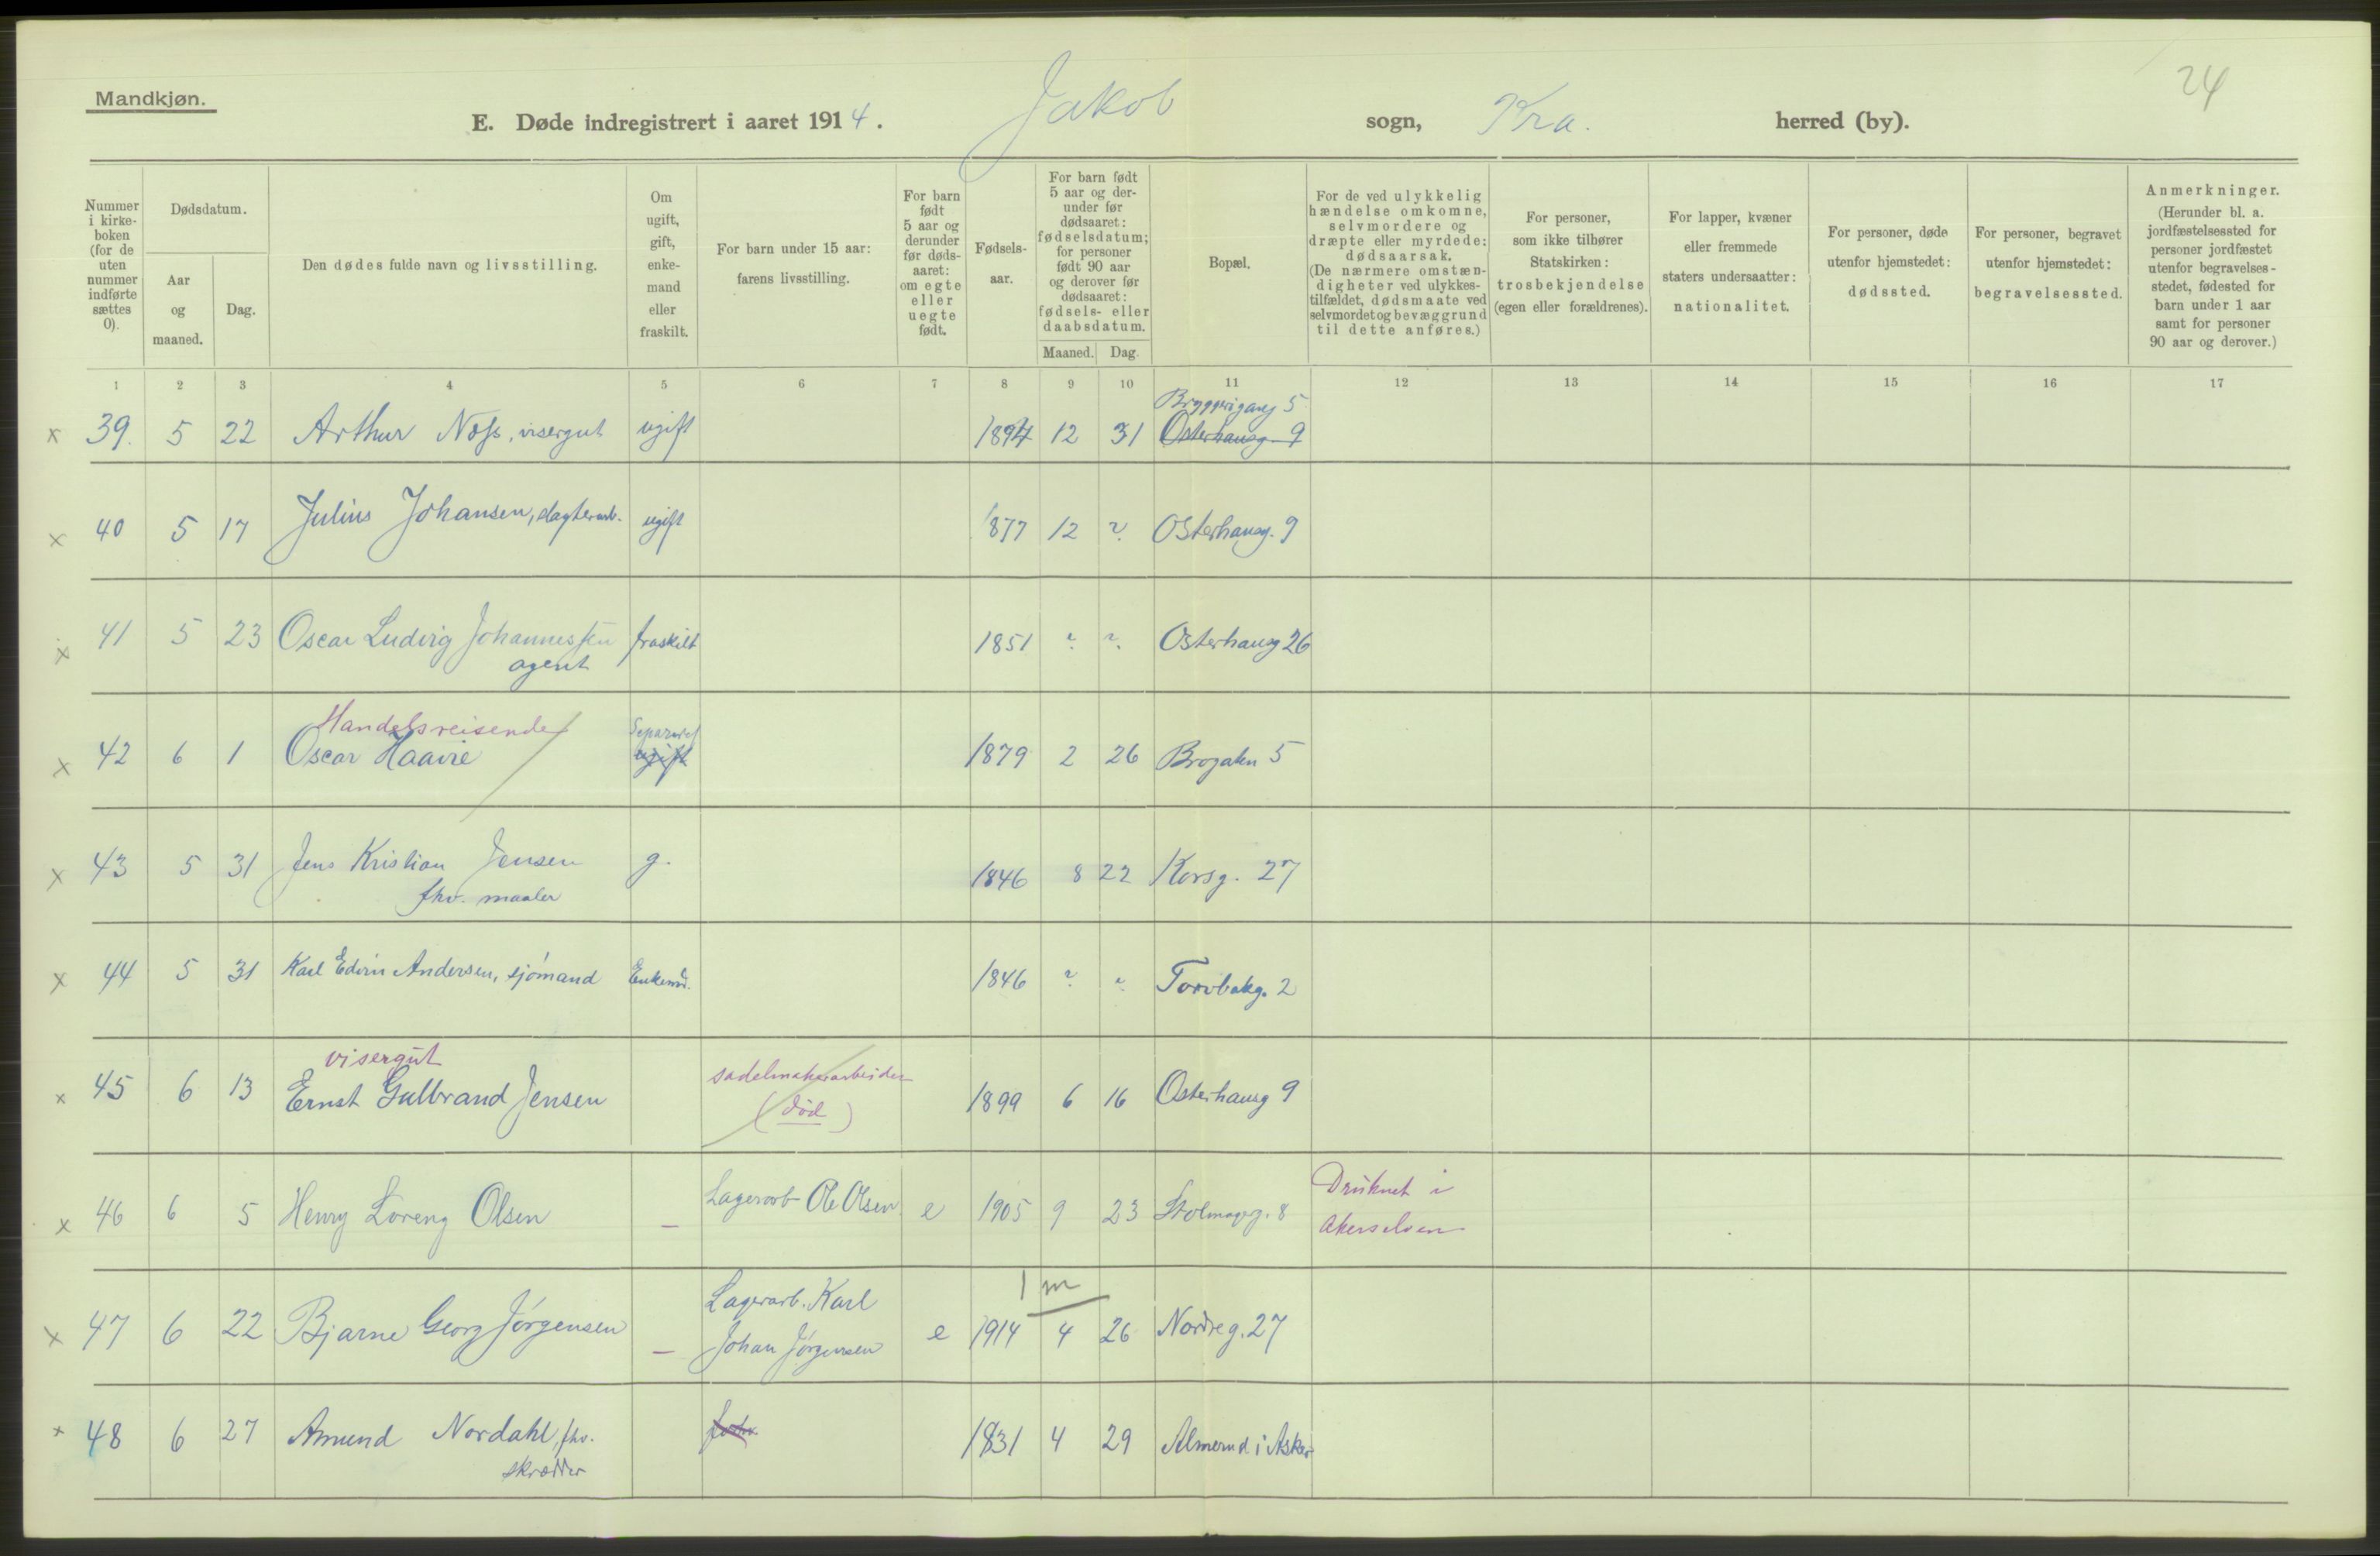 Mandkjøn.
24
E. Døde indregistrert i aaret 1914. Jakob sogn, Kra. herred (by).
Nummer i kirke-boken (for de uten nummer indførte sættes 0).
Dødsdatum.
Aar og maaned.
Dag.
Den dødes fulde navn og livsstilling.
Om ugift, gift, enke-mand eller fraskilt.
For barn under 15 aar: farens livsstilling.
For barn født 5 aar og derunder før døds-aaret: om egte eller uegte født.
Fødsels-aar.
For barn født 5 aar og der-under før dødsaaret: fødselsdatum; for personer født 90 aar og derover før dødsaaret: fødsels- eller daabsdatum.
Maaned. Dag.
Bopæl.
For de ved ulykkelig hændelse omkomne, selvmordere og dræpte eller myrdede: dødsaarsak. (De nærmere omstæn-digheter ved ulykkes-tilfældet, dødsmaate ved selvmordet og bevæggrund til dette anføres.)
For personer, som ikke tilhører Statskirken: trosbekjendelse (egen eller forældrenes).
For lapper, kvæner eller fremmede staters undersaatter: nationalitet.
For personer, døde utenfor hjemstedet: dødssted.
For personer, begravet utenfor hjemstedet: begravelsessted.
Anmerkninger. (Herunder bl. a. jordfæstelsessted for personer jordfæstet utenfor begravelses-stedet, fødested for barn under 1 aar samt for personer 90 aar og derover.)
1 2 3 4 5 6 7 8 9 10 11 12 13 14 15 16 17
Bryggerigang 5
x 39. 5 22 Arthur Næss, visergut ugift 1894 12 31 Osterhausg 9
x 40 5 17 Julius Johansen, ugift 1877 12 ? Osterhausg. 9
x 41 5 23 Oscar Ludvig Johannessen fraskilt 1851 ? ? Osterhausg 26
agent
Handelsreisende Separeret
x 42 6 1 Oscar Haavie ugift 1879 2 26 Brogaten 5
x 43 5 31 Jens Kristian Jensen g. 1846 8 22 Korsg. 27
fhv. maaler
x 44 5 31 Karl Edvin Andersen, sjømand Enkemd. 1846 ? ? Torvbakg. 2
visergut sadelmakerarbeider
x 45 6 13 Ernst Gulbrand Jensen (død) 1899 6 16 Osterhausg 9
Druknet i
x 46 6 5 Henry Lorenz Olsen – Lagerarb Ole Olsen e 1905 9 23 Stolmagerg. 8 Akerselven
1 m
Lagerarb. Karl
x 47 6 22 Bjarne Georg Jørgensen – Johan Jørgensen e 1914 4 26 Nordreg. 27
x 48 6 27 Amund Nordahl, fhv. 1831 4 29 i Asker
skrædder